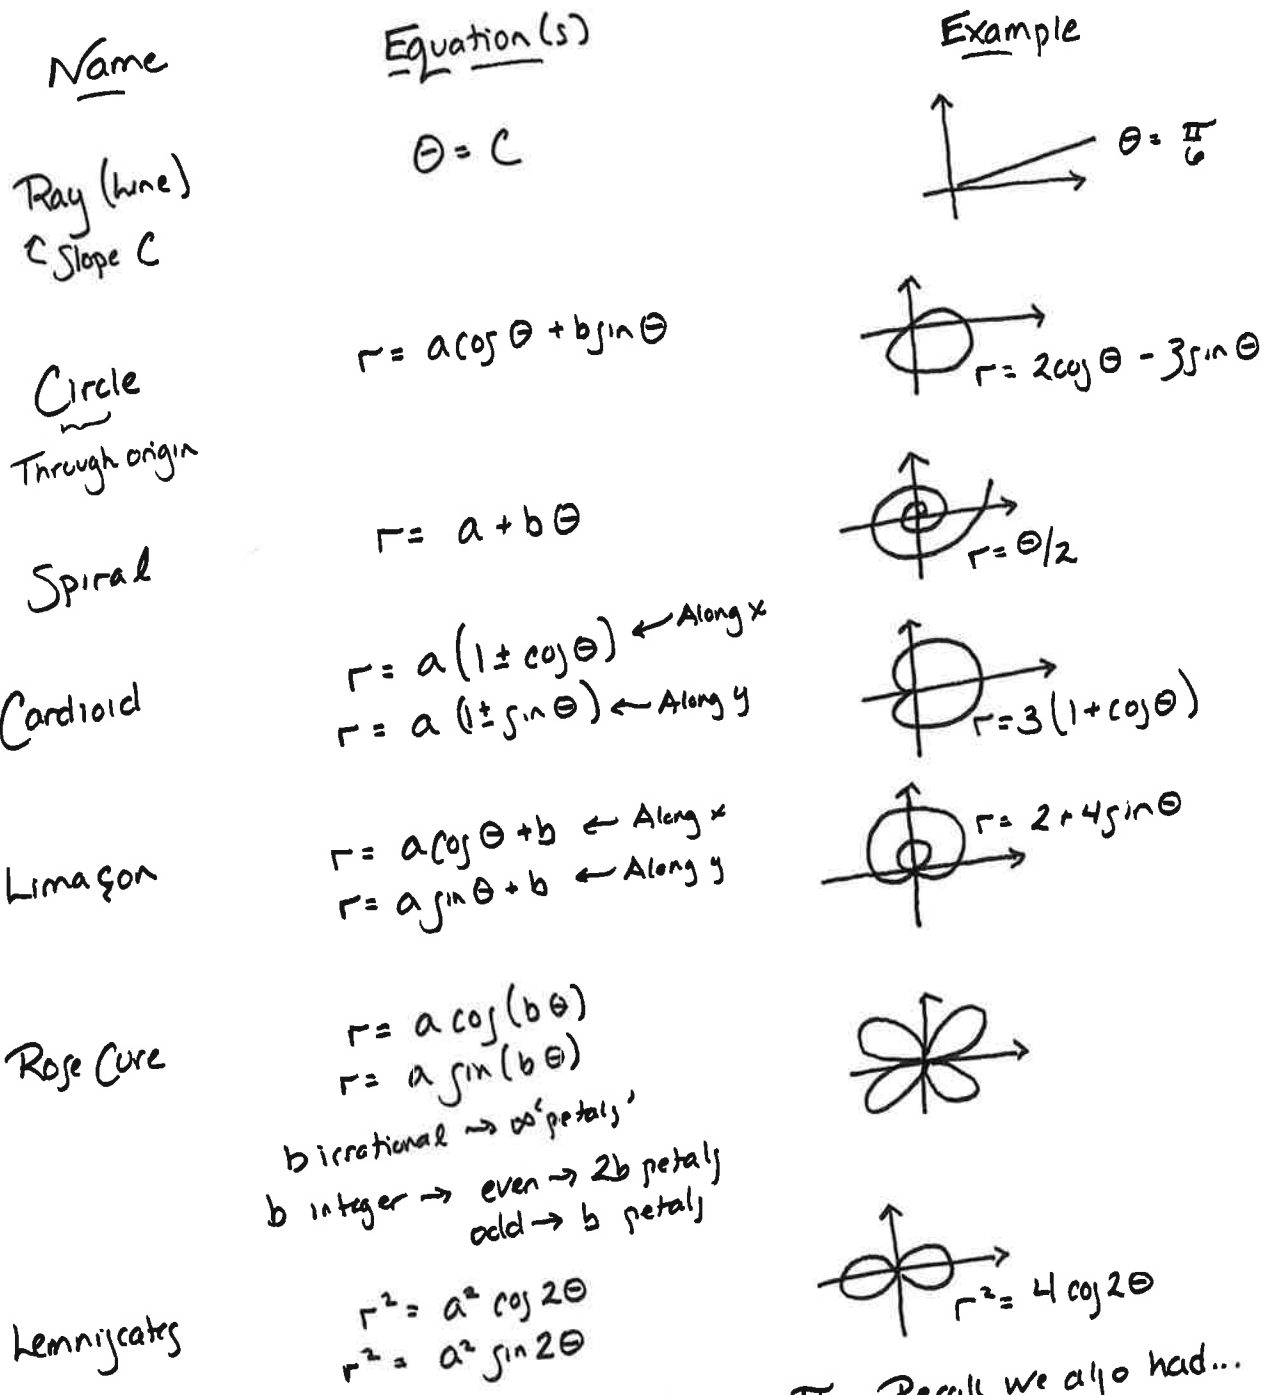 Name Equation(s) Example
Ray (line) θ = C θ = π/6
↑ Slope C
Circle r = a cos θ + b sin θ r = 2cos θ - 3sin θ
Through origin
Spiral r = a + bθ r = θ/2
Cardioid r = a(1 ± cos θ) ← Along x
r = a(1 ± sin θ) ← Along y r = 3(1 + cos θ)
Limaçon r = a cos θ + b ← Along x r = 2 + 4 sin θ
r = a sin θ + b ← Along y
Rose Curve r = a cos(bθ)
r = a sin(bθ)
b irrational → ∞ 'petals'
b integer → even → 2b petals
odd → b petals
Lemniscates r² = a² cos 2θ r² = 4 cos 2θ
r² = a² sin 2θ
Recall we also had...